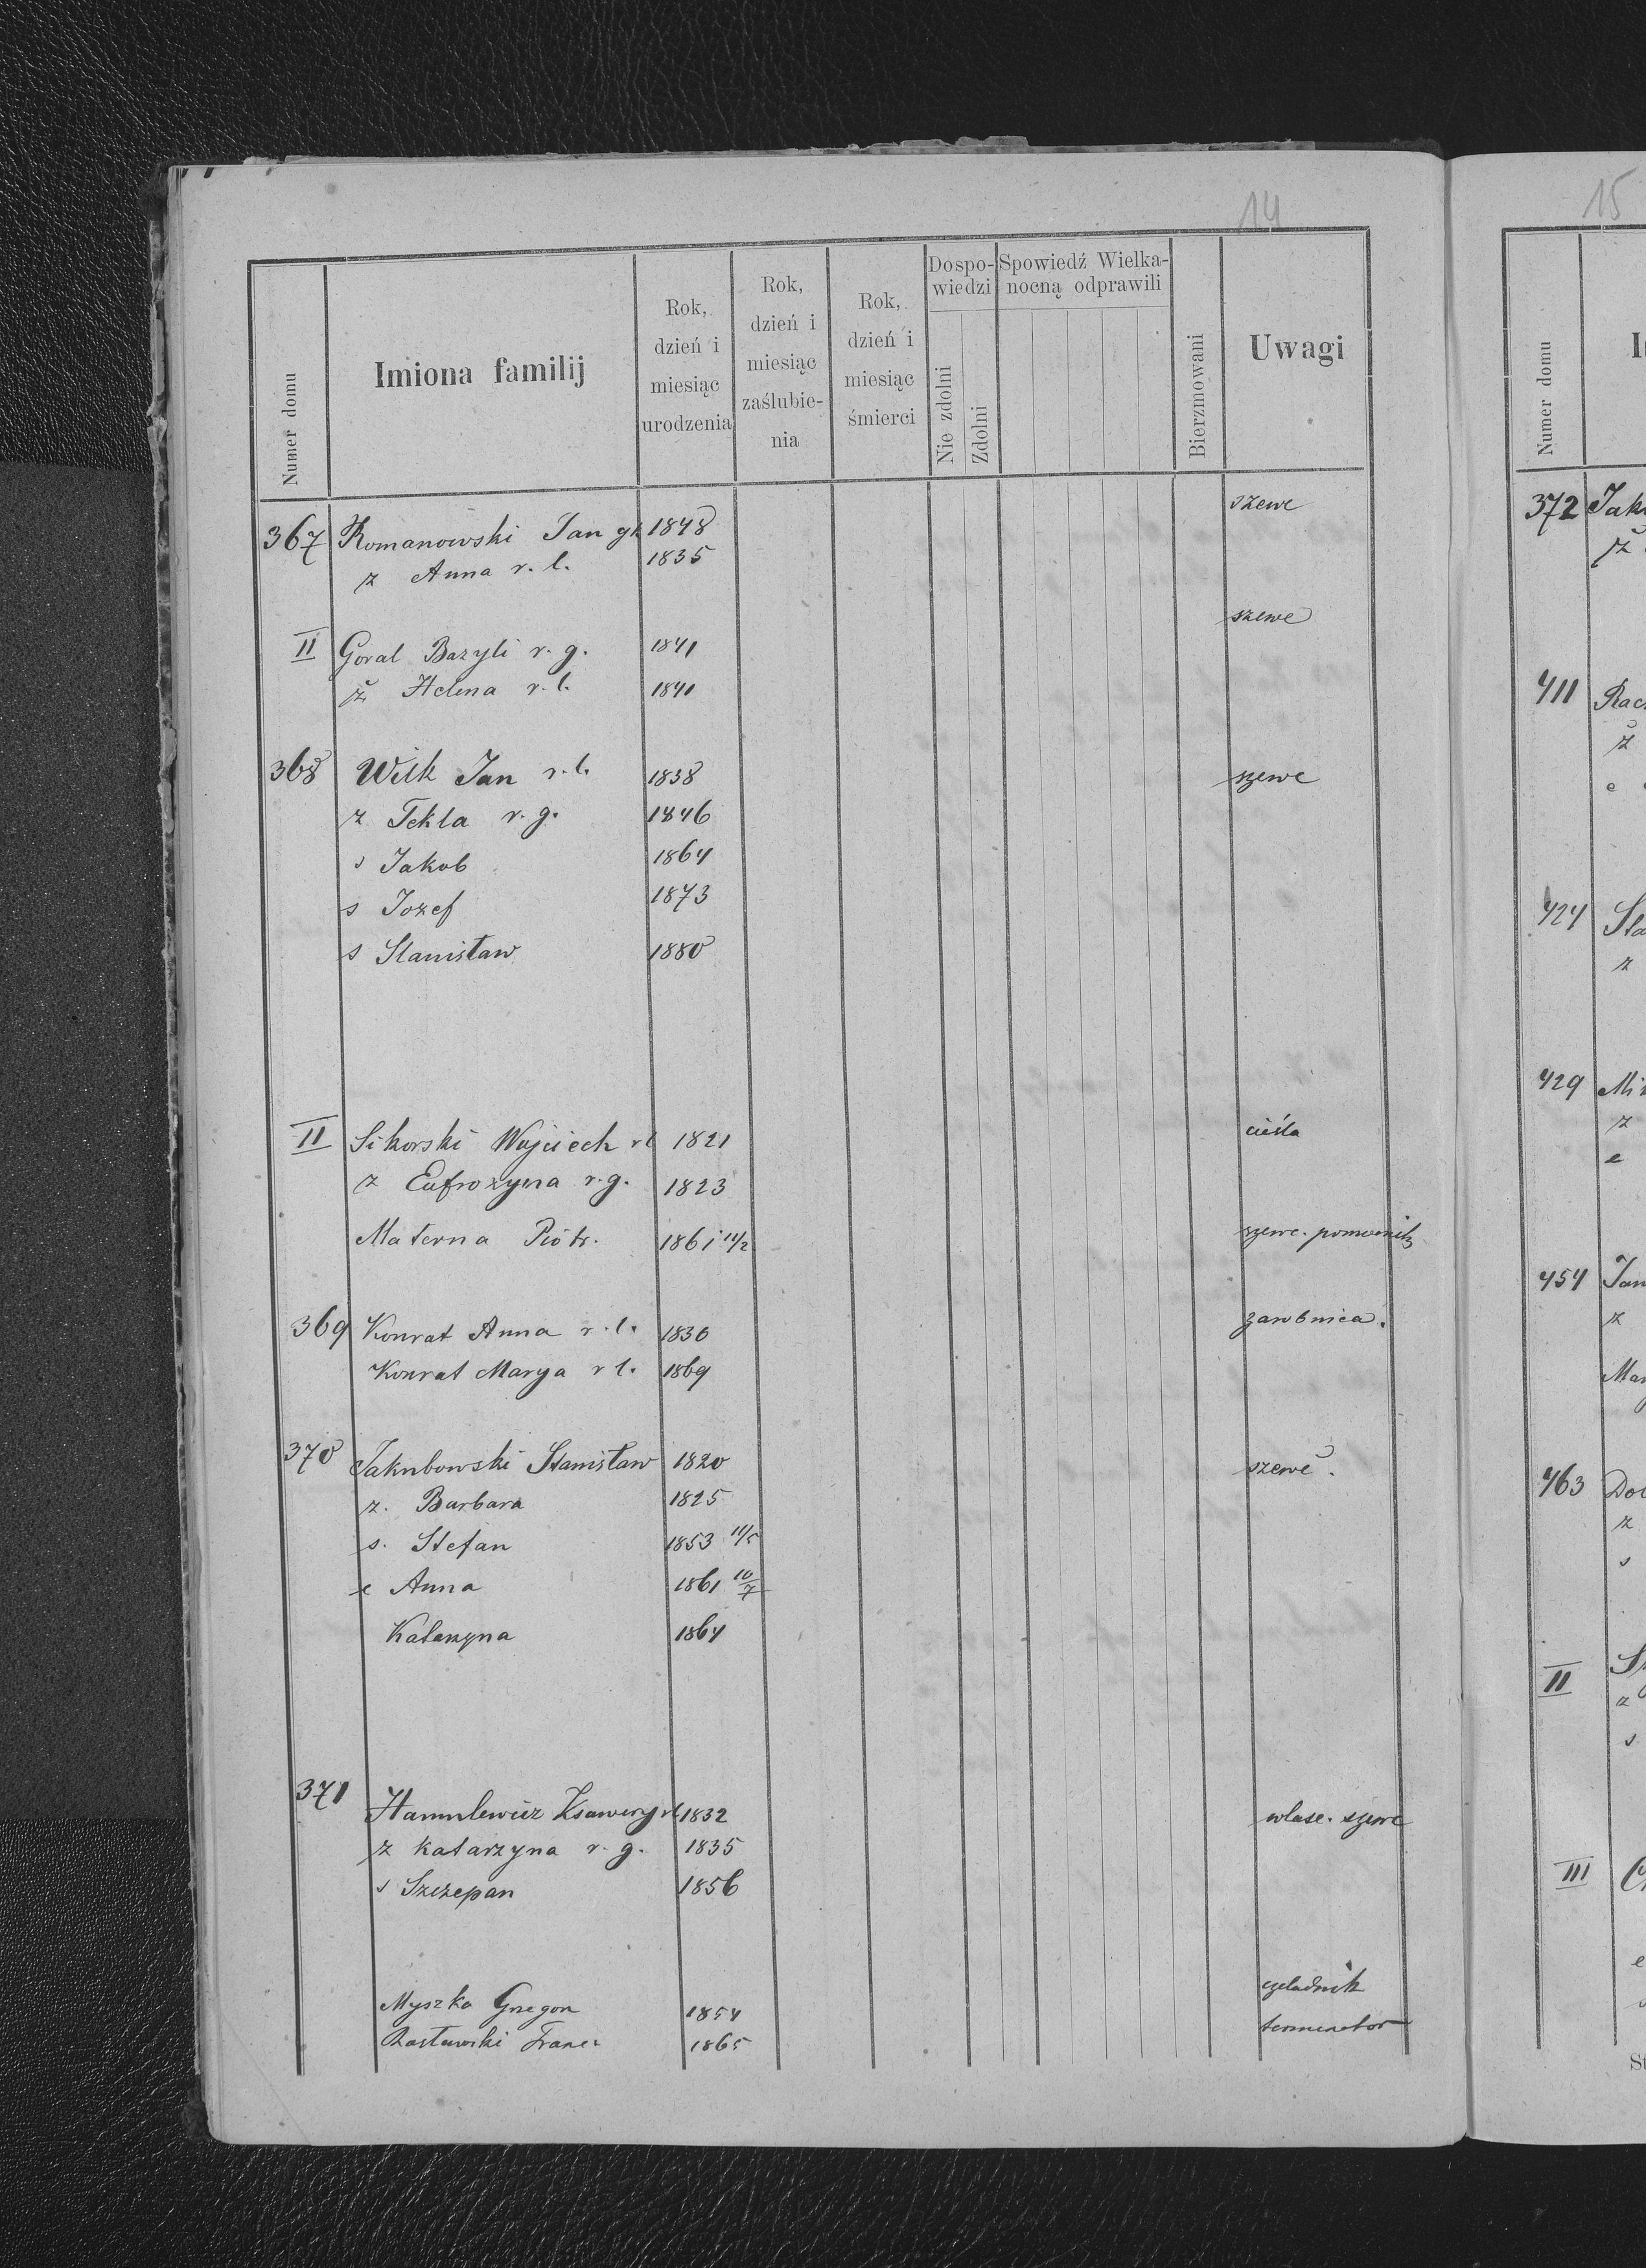 14
Numer domu | Imiona familij | Rok, dzień i miesiąc urodzenia | Rok, dzień i miesiąc zaślubienia | Rok, dzień i miesiąc śmierci | Dospowiedzi | Nie zdolni | Zdolni | Spowiedź Wielkanocną odprawili | Bierzmowani | Uwagi
367 Romanowski Jan gk 1848 szewc
z Anna r. l. 1835
II Goral Bazyli r. g. 1841 szewc
ż Helena r. l. 1841
368 Wilk Jan r. l. 1838 szewc
z Tekla r. g. 1846
s Jakob 1864
s Jozef 1873
s Stanisław 1880
II Sikorski Wojciech rl 1821 cieśla
z Eufrozyna r. g. 1823
Materna Piotr. 1861 11/2 szewc.
369 Konrat Anna r. l. 1836 zarobnica.
Konrat Marya r l. 1869
370 Jakubowski Stanisław 1820 szewc.
z. Barbara 1825
s. Stefan 1853 11/5
c Anna 1861 10/7
Katarzyna 1864
371 Hamulewicz Ksawery rl 1832 wlasc. szewc
z Katarzyna r. g. 1835
s Szczepan 1856
Myszka Grzegorz 1854 czeladnik
Franc 1865 terminator
15
Numer domu
372
411
424
429
454
463
II
III